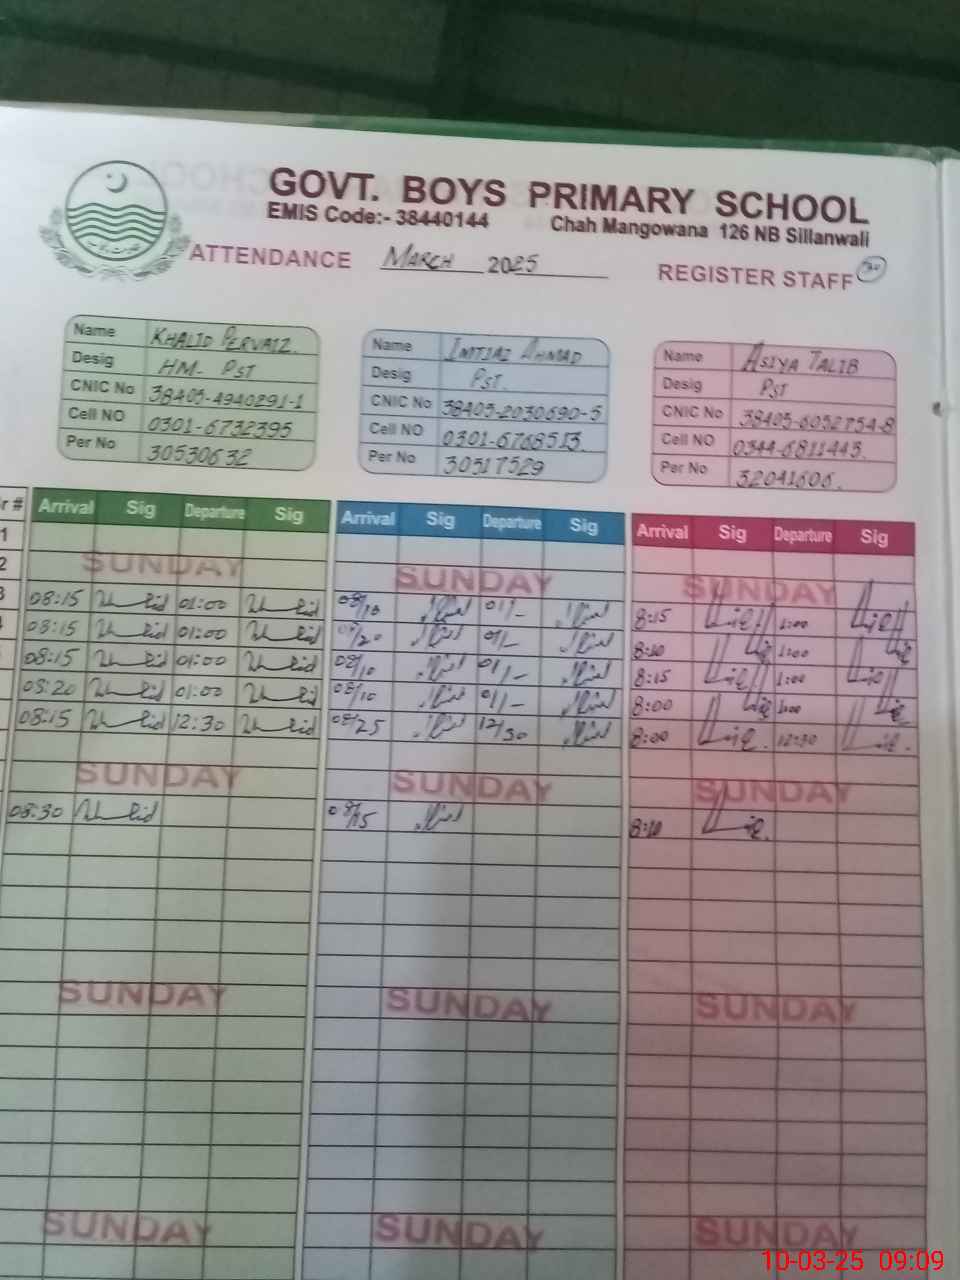 GOVT. BOYS PRIMARY SCHOOL
EMIS Code:- 38440144 Chah Mangowana 126 NB Sillanwali
ATTENDANCE MARCH 2025 REGISTER STAFF
Name KHALID PERVAIZ. Name IMTIAZ AHMAD Name ASIYA TALIB
Desig HM- PST Desig PST. Desig PST
CNIC No 38405-4940291-1 CNIC No 38405-2030690-5 CNIC No 38405-6052754-8
Cell NO 0301-6732395 Cell NO 0301-6768513. Cell NO 0344-6811443.
Per No 30530632 Per No 30517529 Per No 32041606.
r # Arrival Sig Departure Sig Arrival Sig Departure Sig Arrival Sig Departure Sig
1
2 SUNDAY SUNDAY SUNDAY
3 08:15 01:00 08/10 01/- 8:15 1:00
08:15 01:00 08/20 01/- 8:10 1:00
08:15 01:00 08/10 01/- 8:15 1:00
08:20 01:00 08/10 01/- 8:00 1:00
08:15 12:30 08/25 12/30 8:00 12:30
SUNDAY SUNDAY SUNDAY
08:30 08/15 8:10
SUNDAY SUNDAY SUNDAY
SUNDAY SUNDAY SUNDAY
10-03-25 09:09